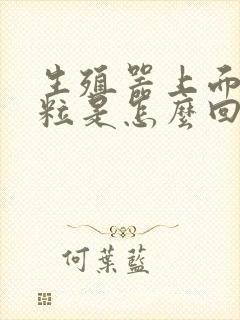 生殖器上面
粒是怎麼回
何葉藍